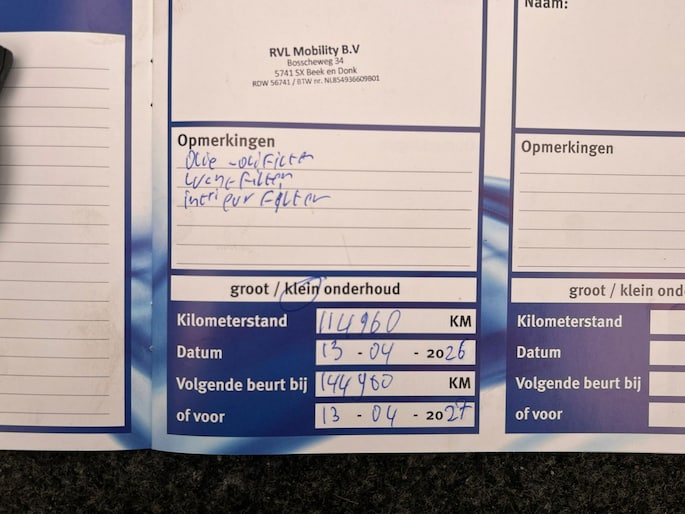 Naam:
RVL Mobility B.V
Bosscheweg 34
5741 SX Beek en Donk
RDW 56741 / BTW nr. NL854936609B01
Opmerkingen
Olie - oliefilter
Luchtfilter
intrieur Filter
groot / klein onderhoud
Kilometerstand 114960 KM
Datum 13 - 04 - 2026
Volgende beurt bij 144960 KM
of voor 13 - 04 - 2027
Opmerkingen
groot / klein ond
Kilometerstand
Datum
Volgende beurt bij
of voor